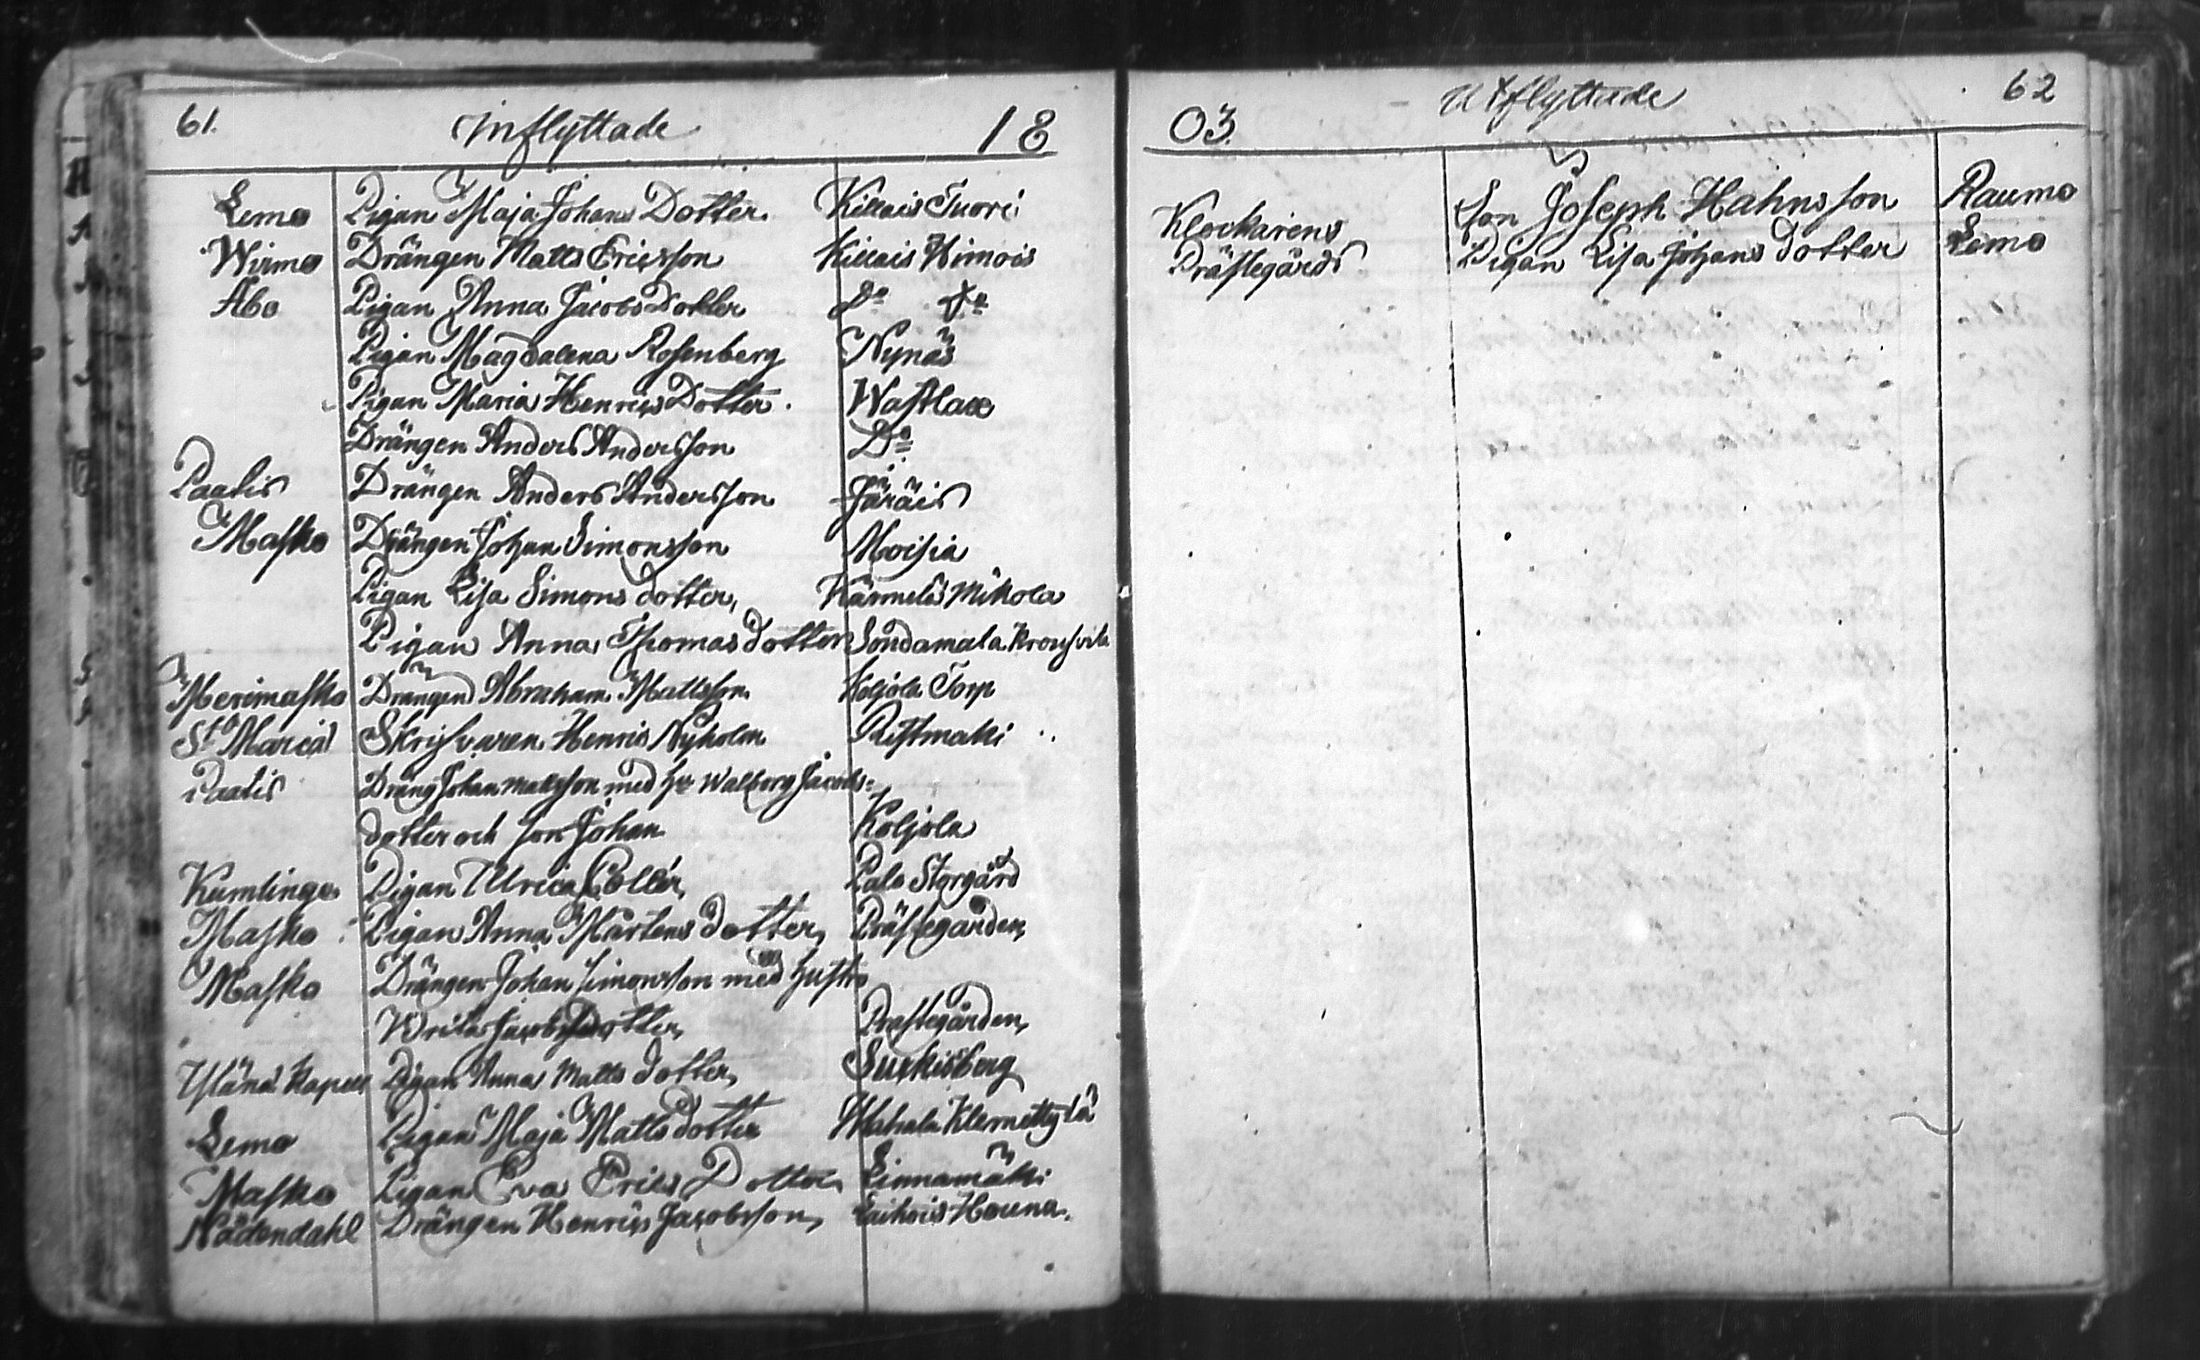 61. Inflyttade 18
Lemo Pigan Maja Johans Dotter. Killais Tuori
Wirmo Drängen Matts Ericsson Killais Himois
Åbo Pigan Anna Jacobs Dotter Do Do
Pigan Magdalena Rosenberg Nynäs
Pigan Maria Henrics Dotter. Wastlax
Drängen Anders Andersson Do
Paatis Drängen Anders Andersson Järäis
Masko Drängen Johan Simonsson Moisia
Pigan Lisa Simons dotter, Kärmelä Mikola
Pigan Anna Thomas dotter Sondamala
Merimasko Drängen Abraham Mattsson Koljola Torp
St Mariæ Skrifvaren Henric Nyholm Ristmaki
Paatis Dräng Johan Mattsson med hu Walborg Jacobs=
dotter och son Johan Koljola
Kumlinge Pigan Ulrica Palo Storgård
Masko Pigan Anna Mårtens dotter, Prästegården,
Masko Drängen Johan Simonsson med hustro
Jacobs dotter, Prästegården,
Yläne Kapell Pigan Anna Matts dotter,
Lemo Pigan Maja Matts dotter Mahala Klemettylä
Masko Pigan Eva Erics Dotter Linnamäki
Nådendahl Drängen Henric Jacobsson, Laihois Houna.
03. Utflyttade 62
Klockarens Son Joseph Hahnsson Raumo
Prästegårds Pigan Lisa Johans dotter Lemo